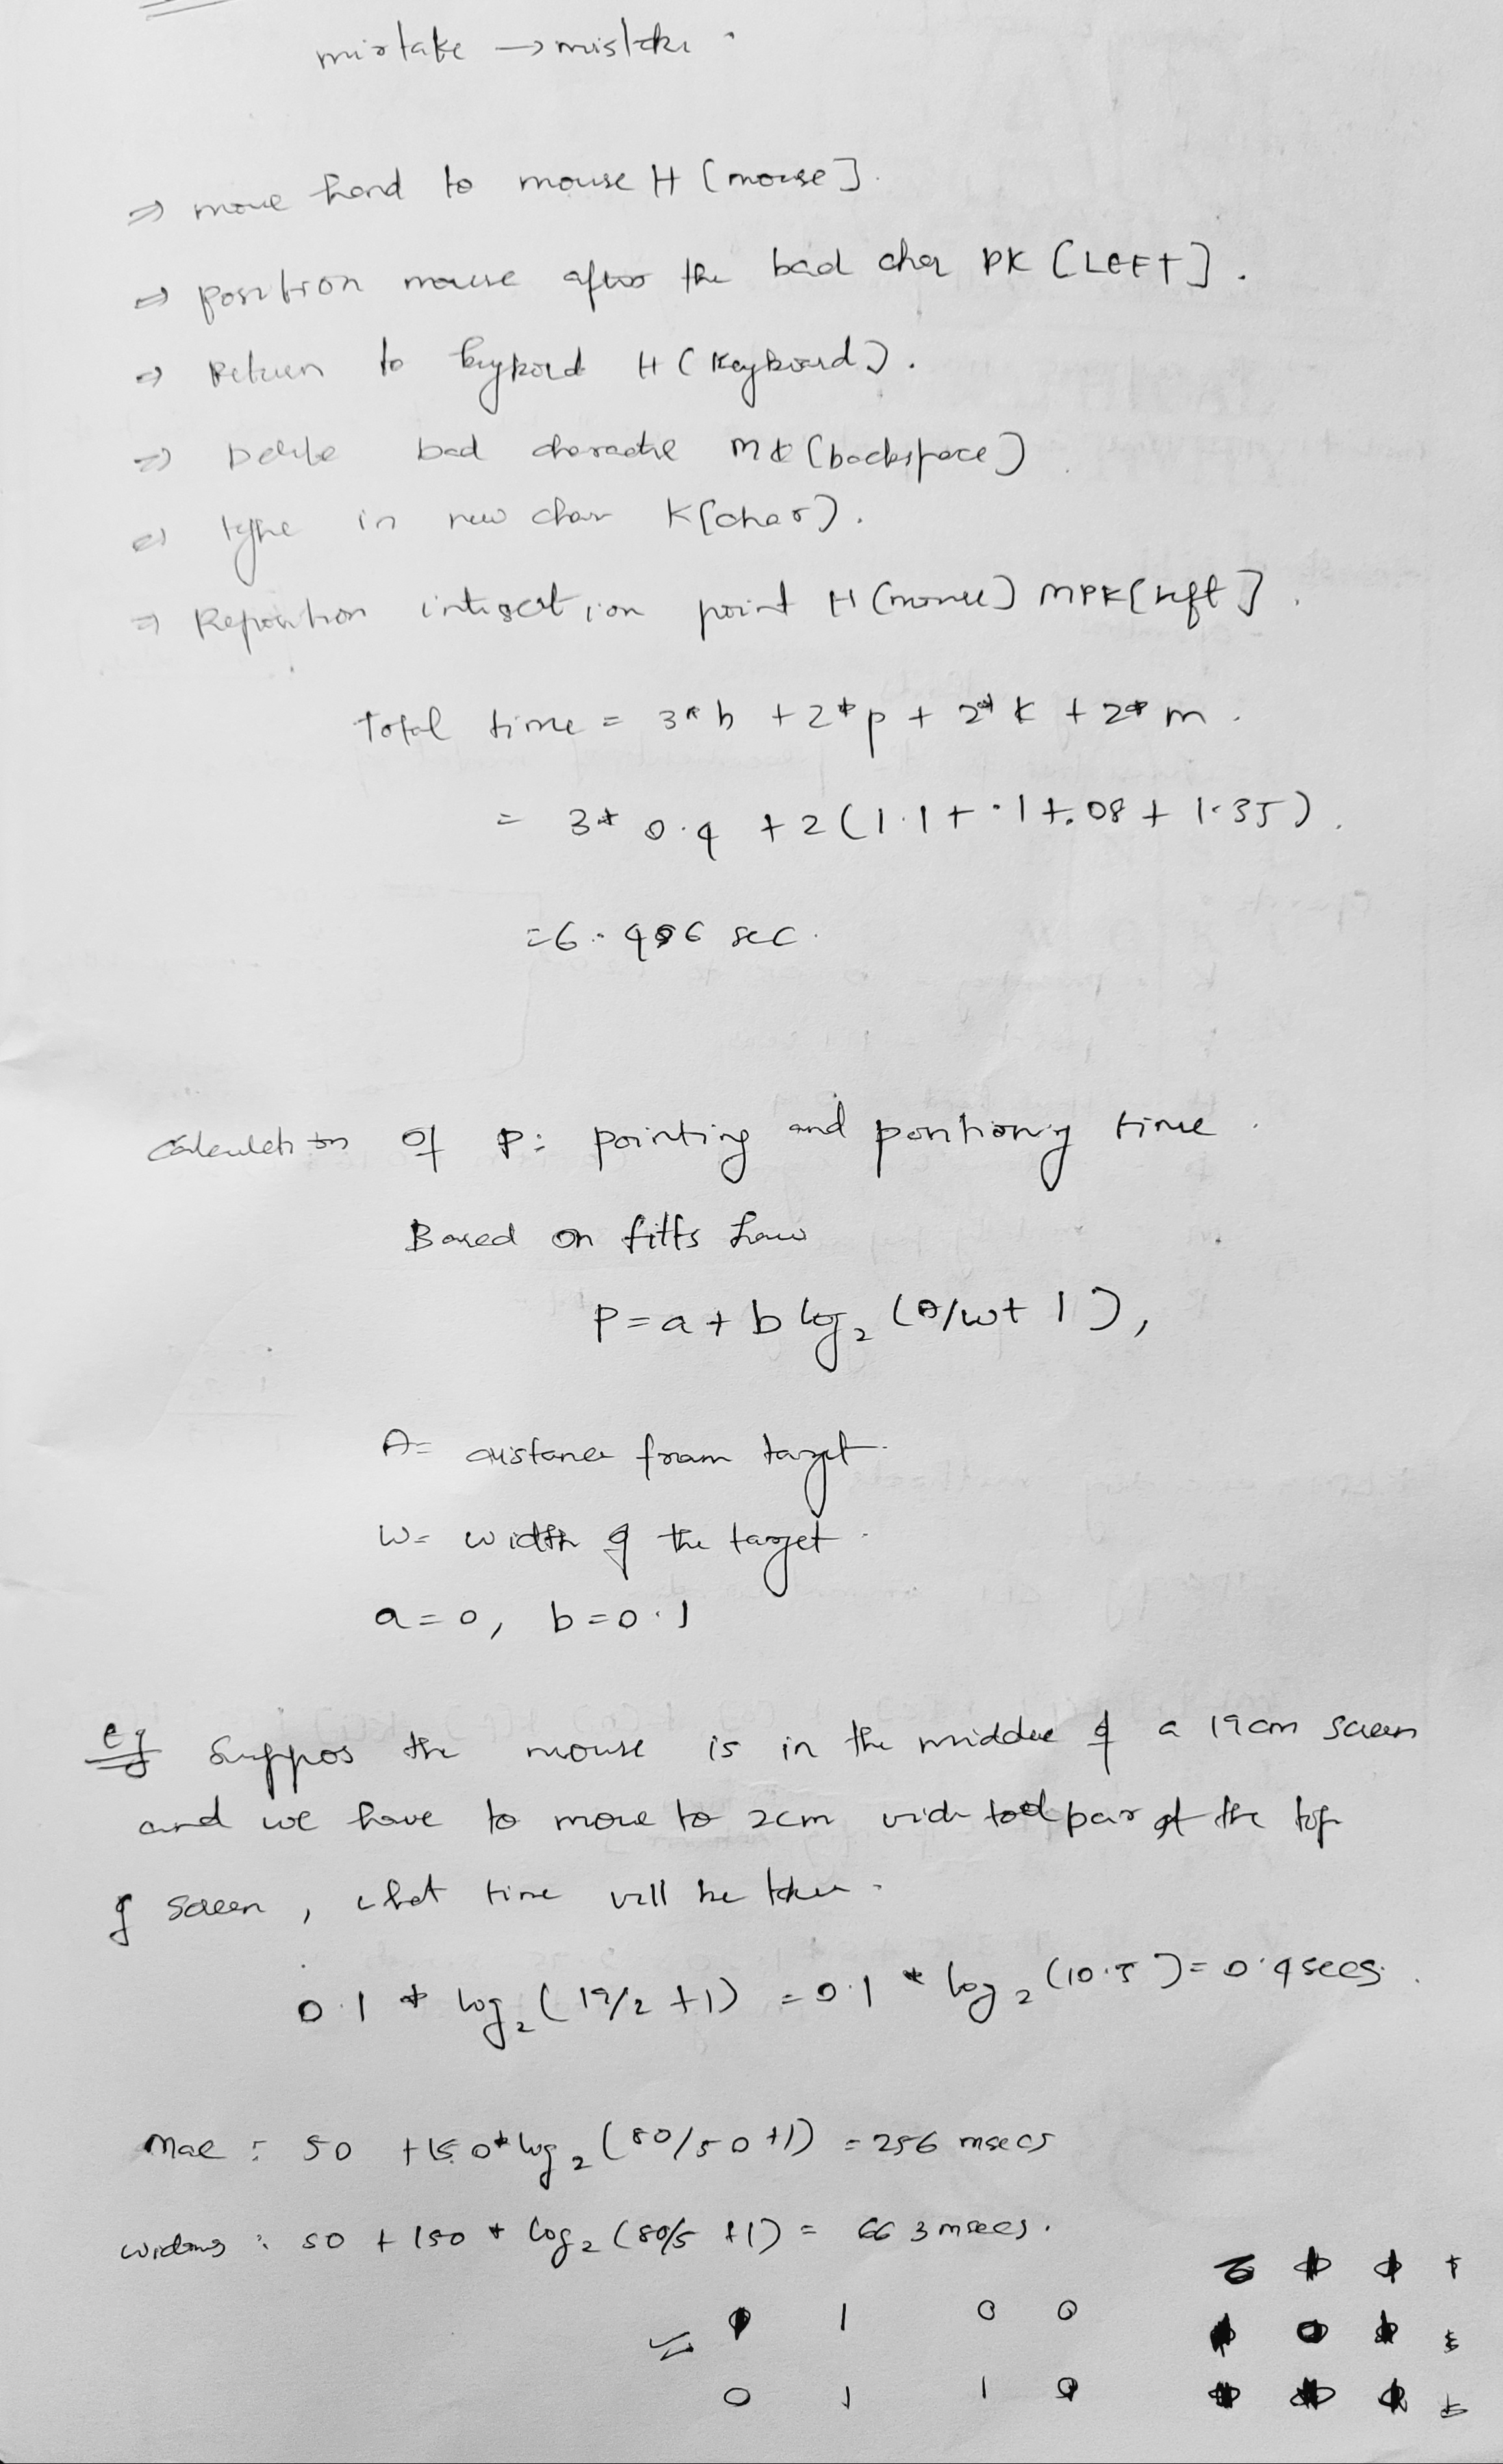 mistake → mistake
⇒ move hand to mouse H [mouse].
⇒ position mouse after the bad char PK [LEFT].
⇒ Return to keyboard H (Keyboard).
⇒ Delete bad character MK (backspace)
⇒ type in new char K(char).
⇒ Reposition point H (mouse) MPK[left].
Total time = 3*h + 2*p + 2*k + 2*m.
= 3* 0.4 + 2(1.1+.1+.08+ 1.35).
sec.
Calculation of P: pointing and positioning time.
Based on fitts Law
P=a+b log₂ (A/w+ 1),
A= distance from target.
W= width of the target.
a=0, b=0.1
eg Suppos the mouse is in the middle of a 19cm screen
and we have to move to 2cm wide tool bar at the top
of screen, what time will be taken.
0.1 * log₂ (19/2 +1) =0.1 * log₂ (10.5)=0.4secs.
Mac : 50 +150*log₂ (80/50+1) =256 msecs
: 50 + 150 * log₂ (80/5 +1) = 663 msecs.
1 0 0
0 1 1